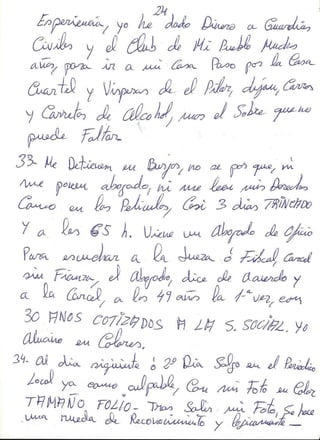 24
Experiencia, yo he dado Dinero a Guardias
Civiles y el Club de Mi Pueblo Muchos
años, para ir a mi Casa Paso por la Casa
Cuartel y Vísperas de el Pilar, dejan, Carros
y Carretas de Alcohol, mas el Sobre que no
puede Faltar
33- Me Detienen en Burjos, no se por que, ni
me ponen abogado, ni me leen mis Derechos
Como en las Peliculas, Casi 3 dias TRINCADO
Y a las 65 h. Viene un Abogado de Oficio
Para escuchar a la Jueza ó Fiscal, Carcel
sin Fianza, el Abogado, dice de Acuerdo y
a la Carcel, a los 49 años la 1ª vez, con
30 AÑOS COTIZADOS A LA S. SOCIAL. YO
Alucino en Colores.
34- Al dia siguiente ó 2º Dia Salgo en el Periodico
Local ya como culpable, Con mi Foto en Color
TAMAÑO FOLIO- Tras Salir mi Foto, Se hace
una rueda de Reconocimiento y logicamente-